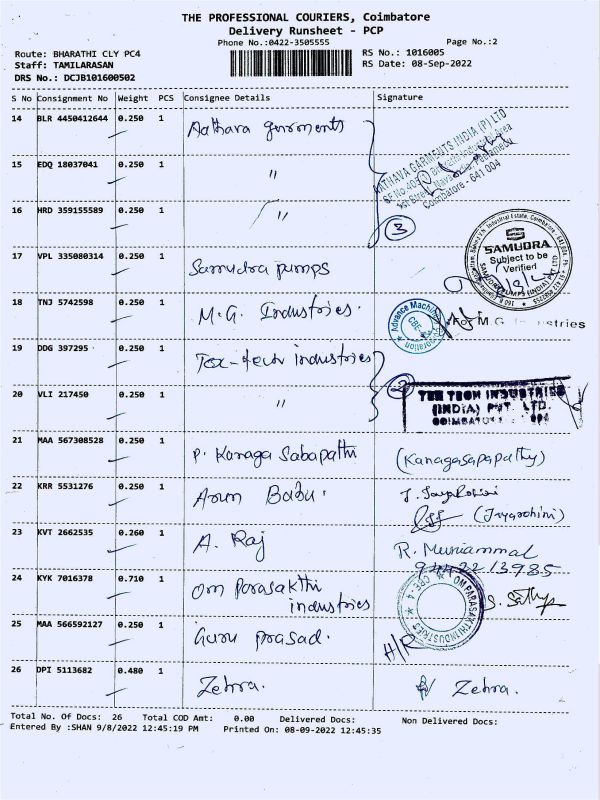 THE PROFESSIONAL COURIERS, Coimbatore
Delivery Runsheet - PCP
Phone No.:0422-3505555
Page No.:2
Route: BHARATHI CLY PC4
RS No.: 1016005
Staff: TAMILARASAN
RS Date: 08-Sep-2022
DRS No.: DCJB101600502
S No Consignment No Weight PCS Consignee Details Signature
14 BLR 4450412644 0.250 1 Aathava garments
ATHAVA GARMENTS INDIA (P) LTD
Coimbatore - 641 004
15 EDQ 18037041 0.250 1 "
16 HRD 359155589 0.250 1 " 3
17 VPL 335080314 0.250 1 Samudra pumps
SAMUDRA
Subject to be
Verified
18 TNJ 5742598 0.250 1 M.G. Industries.
Advance Machine
For M.G. Industries
19 DDG 397295 0.250 1 Tex-tech industries
20 VLI 217450 0.250 1 " 2
TEX TECH INDUSTRIES
(INDIA) PVT. LTD.
21 MAA 567308528 0.250 1 P. Kanaga Sabapathi (Kanagasapapathy)
22 KRR 5531276 0.250 1 Arun Babu.
(Jayarohini)
23 KVT 2662535 0.260 1 A. Raj R. Muniammal
9442213985
24 KYK 7016378 0.710 1 Om Parasakthi
industries
OM PARASAKTHI INDUSTRIES
CBE-4
S. Sathya
25 MAA 566592127 0.250 1 Guru prasad. H/R
26 DPI 5113682 0.480 1 Zehra. Zehra.
Total No. Of Docs: 26 Total COD Amt: 0.00 Delivered Docs: Non Delivered Docs:
Entered By :SHAN 9/8/2022 12:45:19 PM Printed On: 08-09-2022 12:45:35